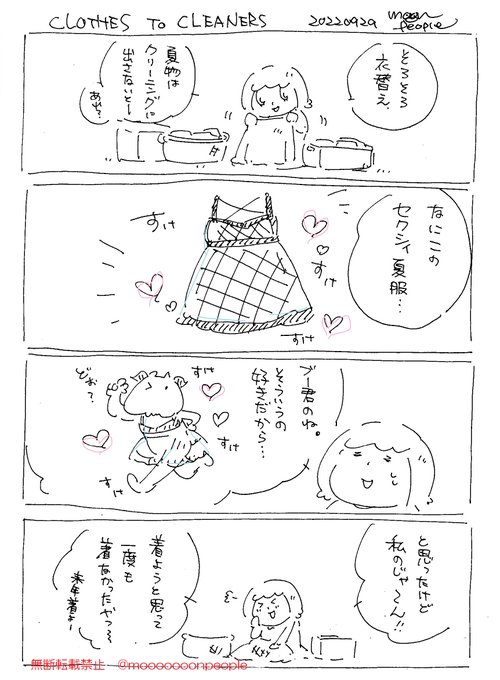 CLOTHES TO CLEANERS
20220929
moon people
そろそろ
衣替え、
夏物は
クリーニングに
出さないとー
あれ?
なにこの
セクシィ夏服…
すけ
すけ
すけ
ブー君のね。
そういうの
好きだから…
どお?
すけ
すけ
すけ
と思ったけど
私のじゃ〜ん!!
着ようと思って
一度も
着なかったやつ〜
来年着よー
無断転載禁止 @mooooooonpeople